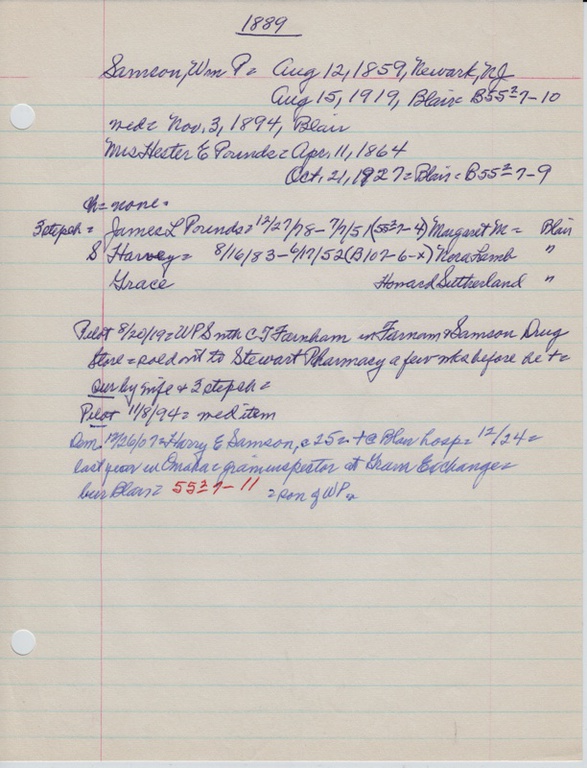 1889
Samson, Wm P = Aug 12, 1859, Newark, NJ
Aug 15, 1919, Blair = B55 2 7-10
med = Nov. 3, 1894, Blair
Mrs Hester E Pounds = Apr. 11, 1864
Oct. 21, 1927 = Blair = B55 2 7-9
ch = none =
3 stepch = James L Pounds = 12/27/78 - 7/7/51 (55 2 7-4) Margaret M = Blair
S Harvey = 8/16/83 - 6/17/52 (B107-6-x) Nora Lamb "
Grace Howard Sutherland "
Pilot 8/20/19 = WPS with C T Farnham in Farnam & Samson Drug
Store = sold out to Stewart Pharmacy a few wks before he + =
Sur by wife & 3 stepch =
Pilot 11/8/94 = med item
Dem 12/26/07 = Harry E Samson, c 25 = + @ Blair hosp = 12/24 =
last year in Omaha = grain inspector at Grain Exchange =
bur Blair = 55 2 7-11 = son of WP